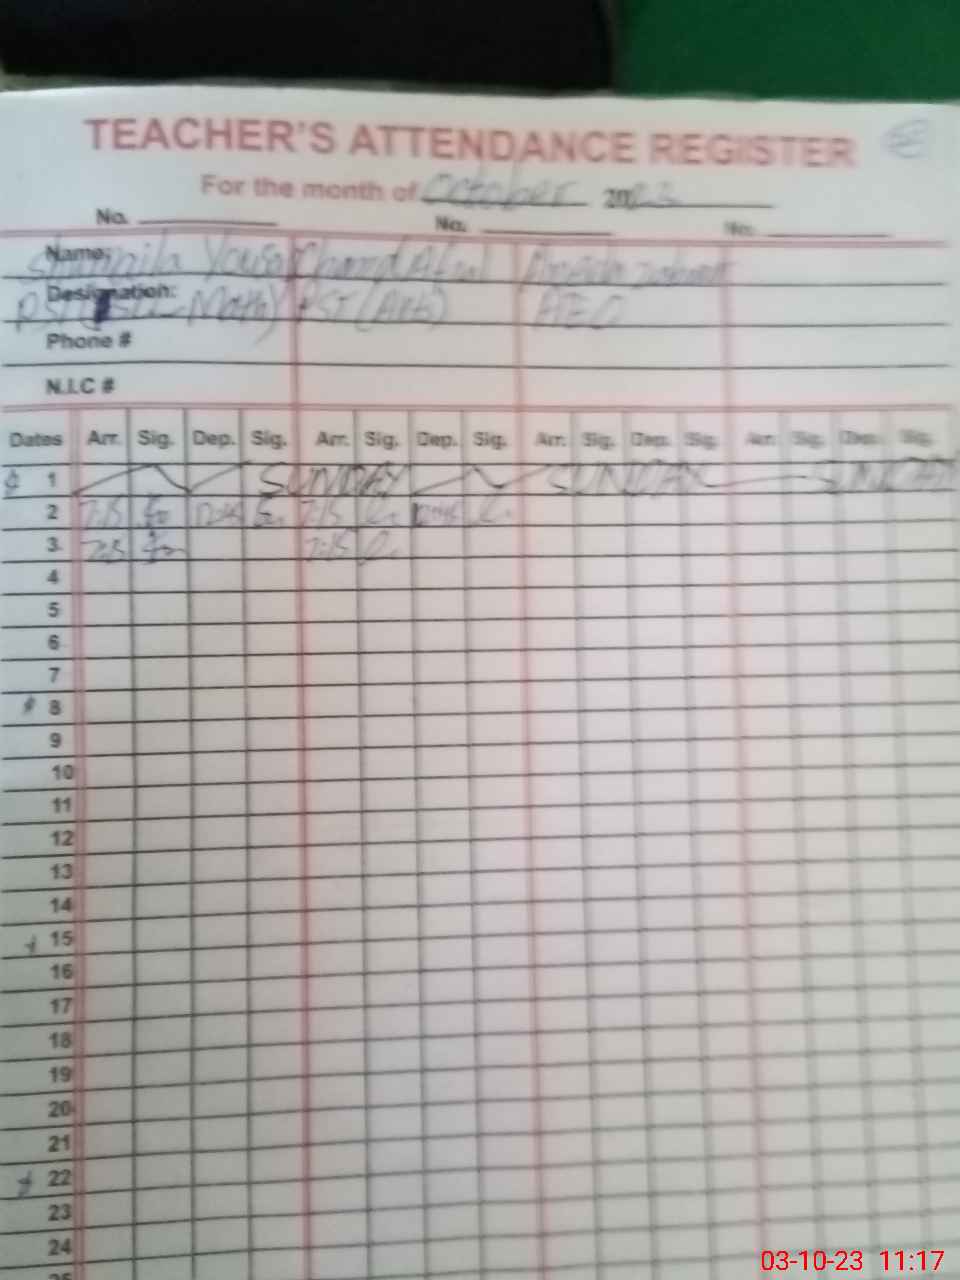 TEACHER'S ATTENDANCE REGISTER
For the month of October 2023
No. No. No.
Name: Yousaf Chand Afzal
Designation: PST ( Math) PST (Arts) AEO
Phone #
N.I.C #
Dates Arr. Sig. Dep. Sig. Arr. Sig. Dep. Sig. Arr. Sig. Dep. Sig. Arr. Sig. Dep. Sig.
1 SUNDAY SUNDAY SUNDAY
2 7:15 12:45 7:15 12:45
3 7:15 7:15
4
5
6
7
8
9
10
11
12
13
14
15
16
17
18
19
20
21
22
23
24
25
03-10-23 11:17